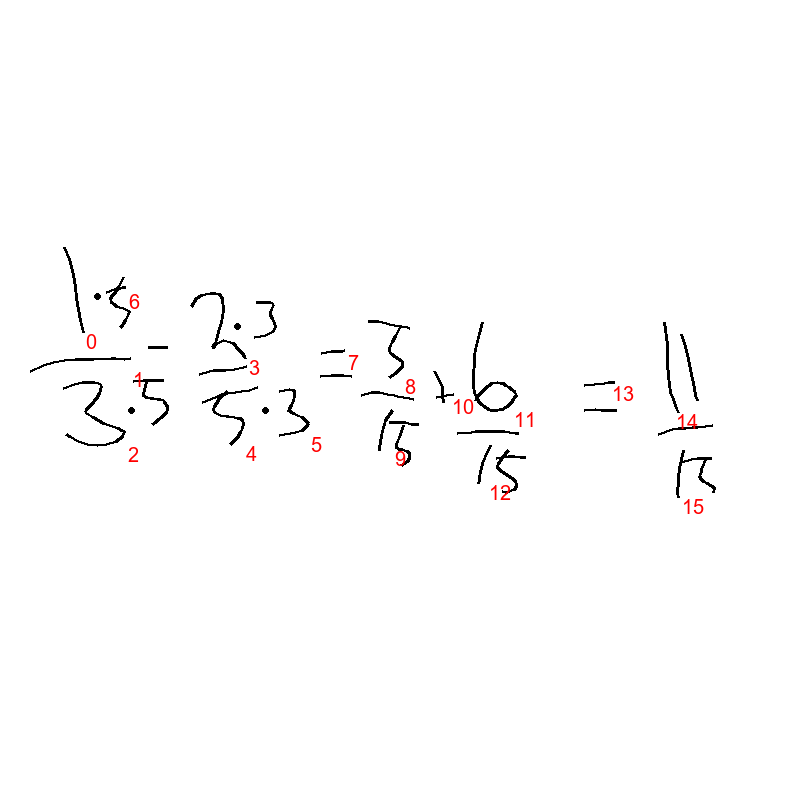 1·5/3·5 - 2·3/5·3 = 5/15 + 6/15 = 11/15
0 1 2 3 4 5 6 7 8 9 10 11 12 13 14 15